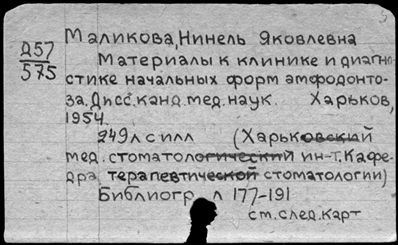 Д57
575
Маликова, Нинель Яковлевна
Материалы к клинике и диагно-
стике начальных форм амфодонто-
за. Дисс. канд. мед. наук. Харьков,
1954.
249 л с илл (Харьковский
мед. стоматологический ин-т. Кафе-
дра терапевтической стоматологии)
Библиогр. л 177-191
см. след. карт